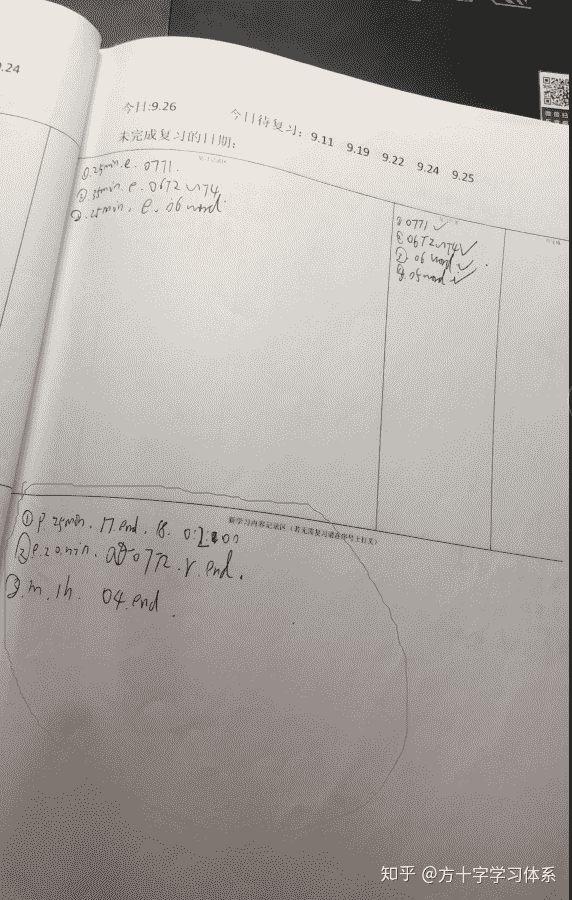 9.24
今日:9.26
今日待复习：9.11 9.19 9.22 9.24 9.25
未完成复习的日期：
①.25min.e. 0771.
②.35min.e. 0672~74.
③.25min. e. 06 word.
① 0771 ✓
② 0672~74 ✓
③. 06 word ✓
④. 05 word ✓
新学习内容记录区（若无需复习请在序号上打叉）
① P. 25min. 17.end. 18.
② e. 20.min. 0772. r. end.
③. m. 1h. 04.end.
知乎 @方十字学习体系